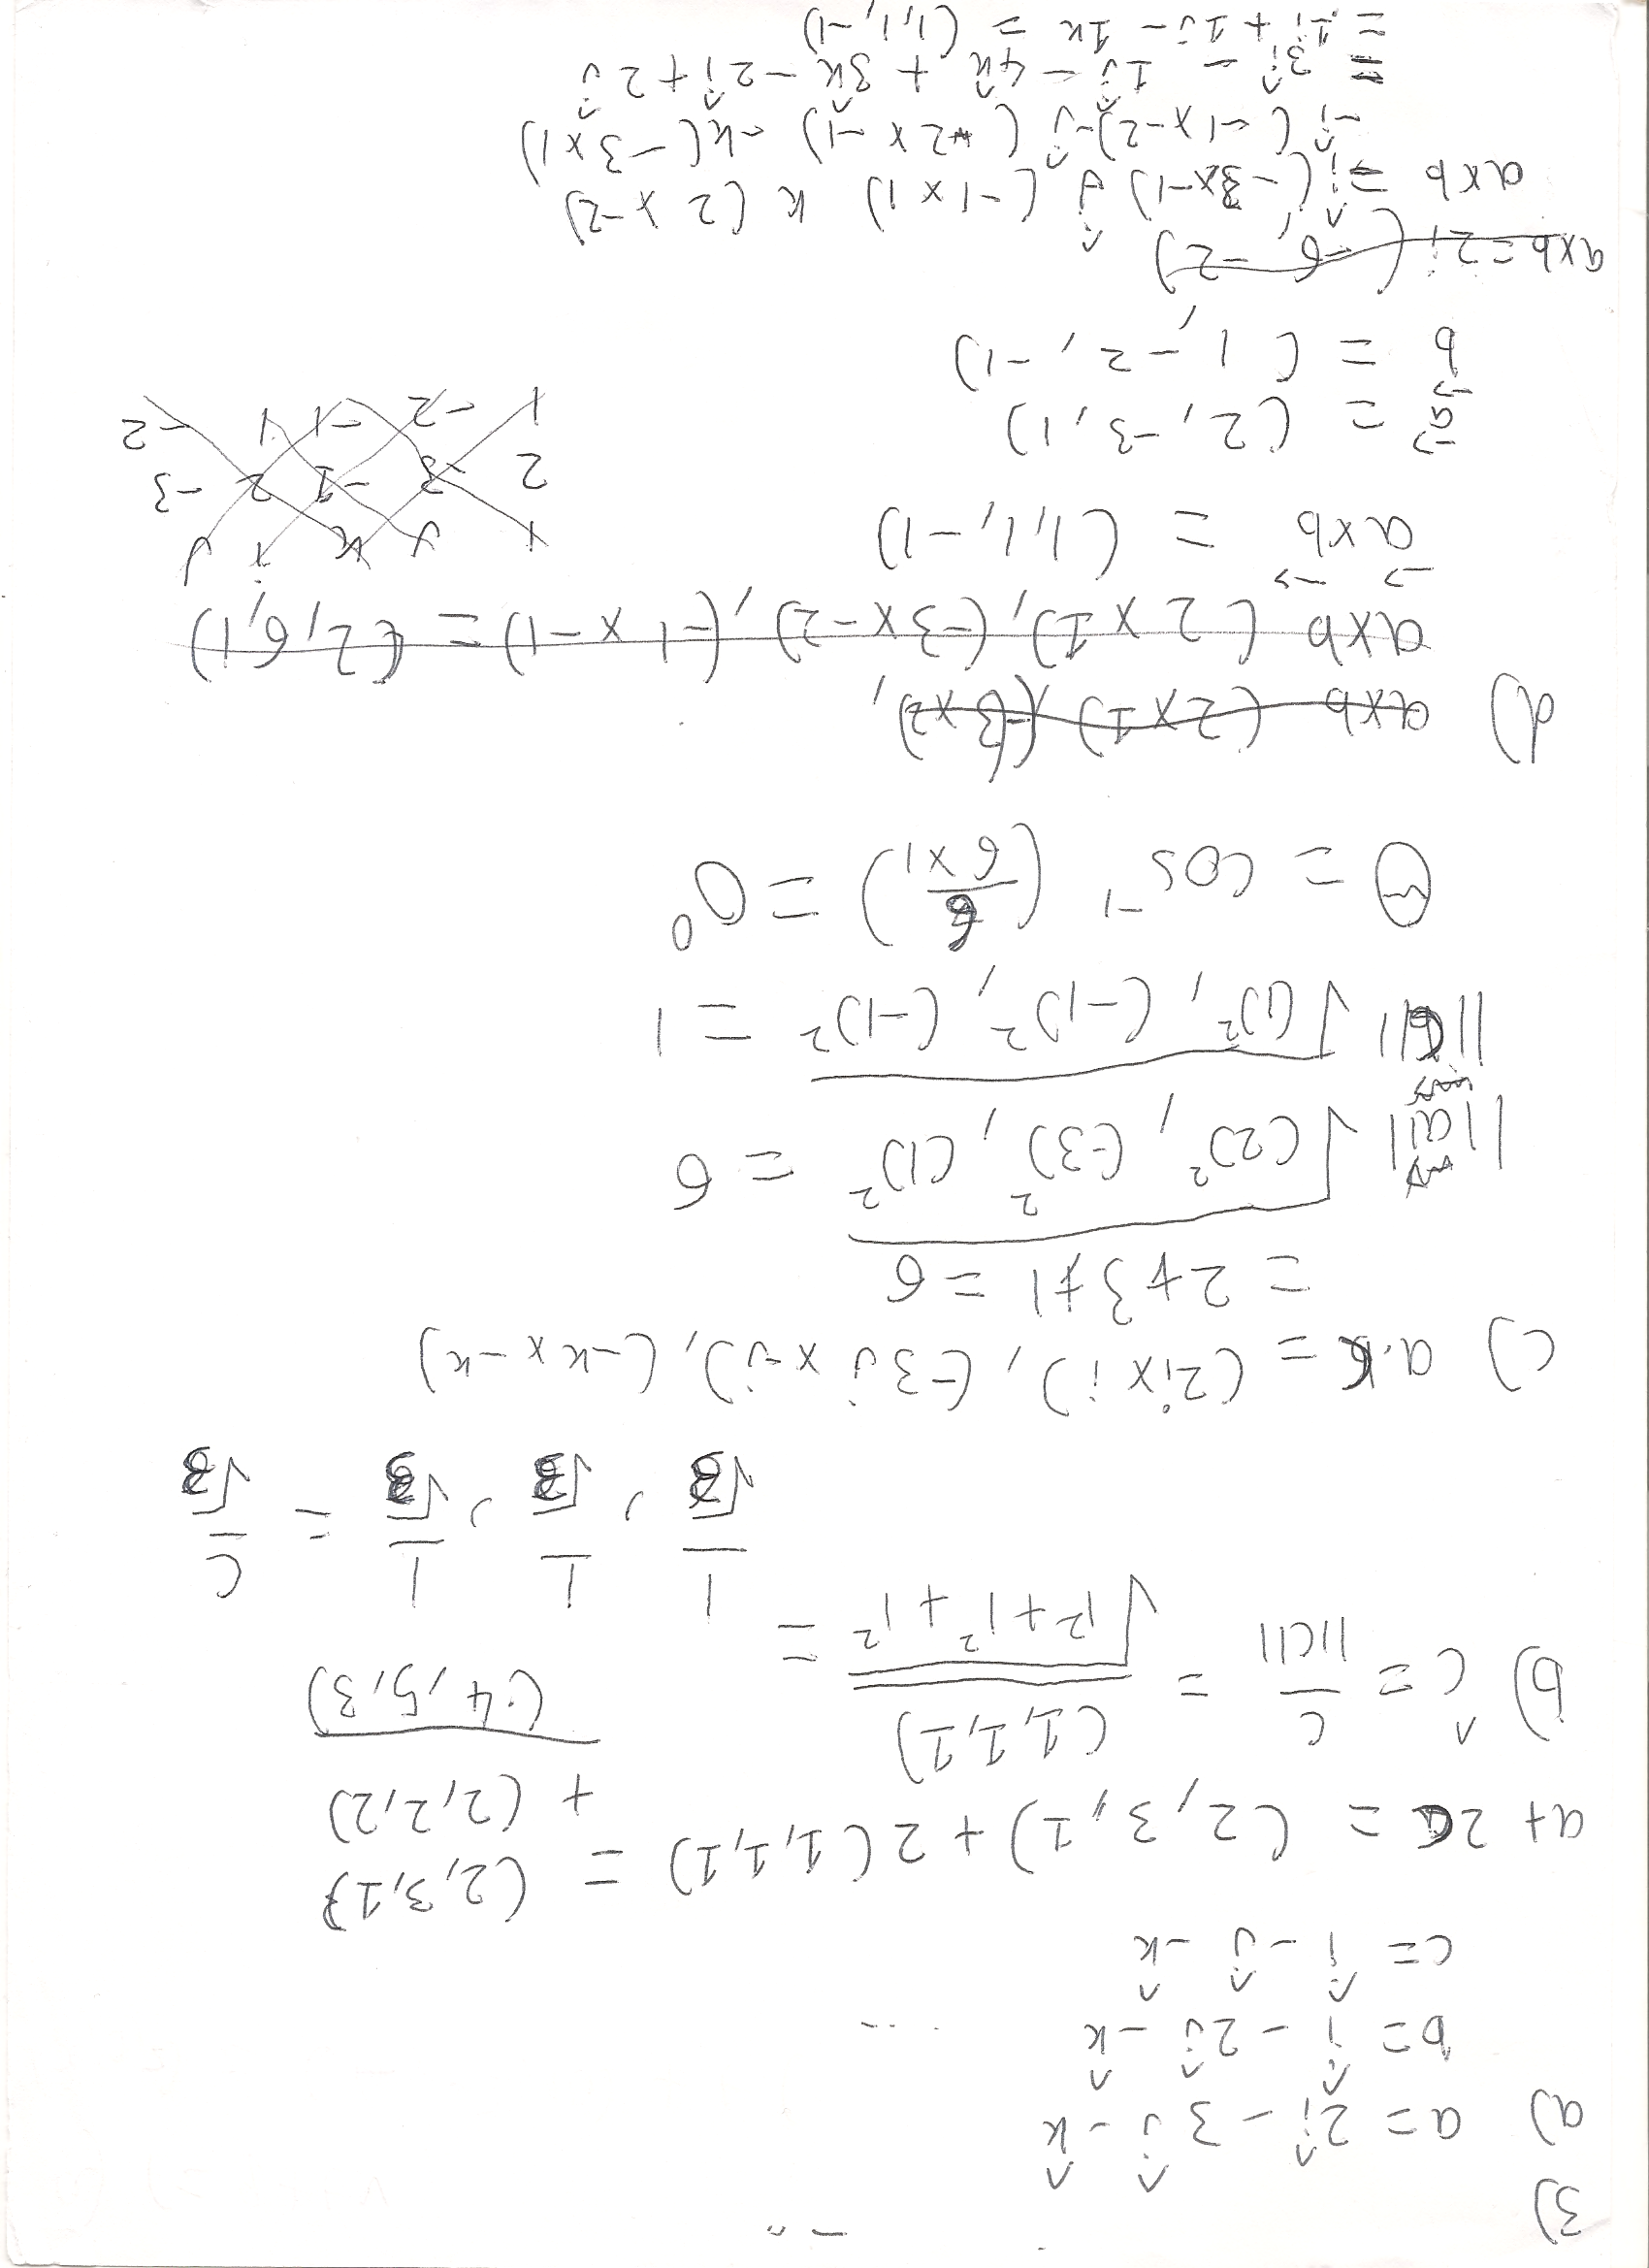 3)
a) a = 2î - 3ĵ - k̂
b = î - 2ĵ - k̂
c = î - ĵ - k̂
a + 2c = (2, 3, 1) + 2(1, 1, 1) = (2, 3, 1)
+ (2, 2, 2)
(4, 5, 3)
b) ĉ = c / ||c|| = (1, 1, 1) / √(1² + 1² + 1²) = 1/√3, 1/√3, 1/√3 = c/√3
c) a.c = (2i x i), (-3j x -j), (-k x -k)
= 2 + 3 + 1 = 6
||a|| √((2)², (-3)², (1)²) = 6
||c|| √((1)², (-1)², (-1)²) = 1
θ = cos⁻¹ (6 / (6 x 1)) = 0°
d) axb (2 x 1), (-3 x 2),
axb (2 x 1), (-3 x -2), (-1 x -1) = (2, 6, 1)
axb = (1, 1, -1)
a = (2, -3, 1)
b = (1, -2, -1)
i j k i j
2 -3 -1 2 -3
1 -2 -1 1 -2
axb = 2i (-6, -2)
axb = î (-3x-1) ĵ (-1 x 1) k (2 x -2)
-î (-1 x -2) -ĵ (2 x -1) -k (-3 x 1)
= 3î - 1ĵ - 4k̂ + 3k̂ - 2î + 2ĵ
= 1i + 1j - 1k = (1, 1, -1)